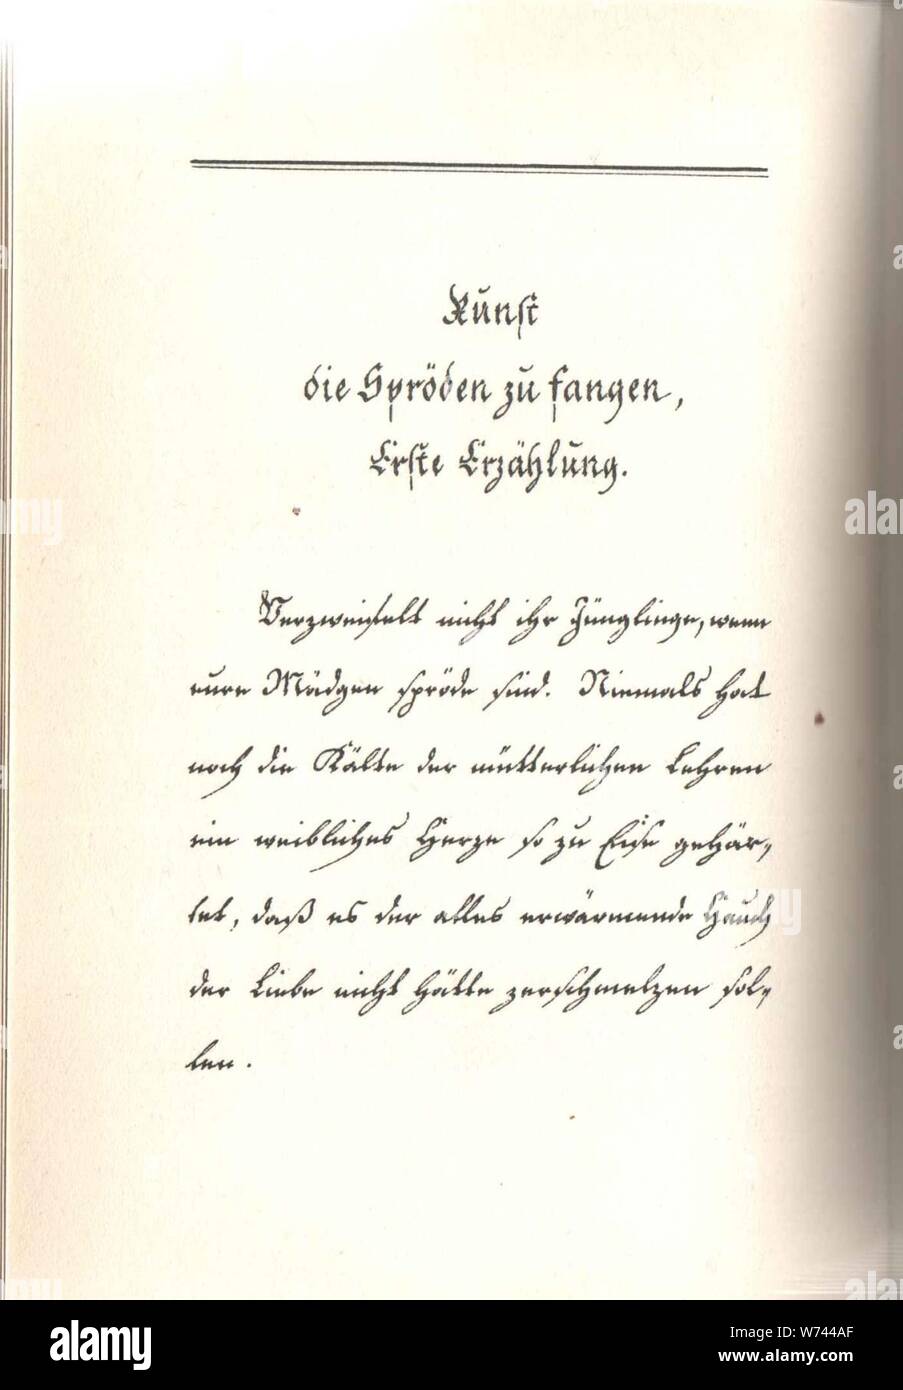 Kunst
die Spröden zu fangen,
Erste Erzählung.
Verzweifelt nicht ihr Jünglinge, wenn
eure Mädgen spröde sind. Niemals hat
noch die Kälte der mütterlichen Lehren
ein weibliches Herze so zu Eise gehär-
tet, daß es der alles erwärmende Hauch
der Liebe nicht hätte zerschmelzen sol-
len.
alamy
alamy
Image ID: W744AF
www.alamy.com